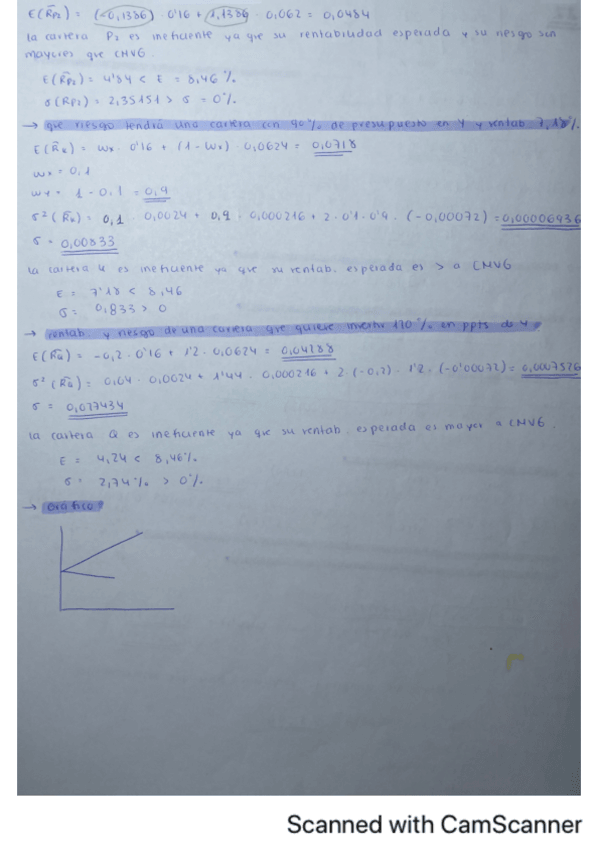 E(R̄p₂) = (-0,1386) · 0'16 + 1,1386 · 0,062 = 0,0484
la cartera P₂ es ineficiente ya que su rentabilidad esperada y su riesgo son
mayores que CMVG.
E(R̄p₂) = 4'84 < E = 8,46 %.
σ(Rp₂) = 2,35151 > σ = 0%.
→ que riesgo tendría una cartera con 90% de presupuesto en Y y rentab 7,18%.
E(R̄k) = wx · 0'16 + (1 - wx) · 0,0624 = 0,0718
wx = 0,1
wy = 1 - 0,1 = 0,9
σ²(R̄k) = 0,1 · 0,0024 + 0,9 · 0,000216 + 2 · 0'1 · 0'9 · (-0,00072) = 0,00006936
σ = 0,00833
la cartera k es ineficiente ya que su rentab. esperada es > a CMVG
E = 7'18 < 8,46
σ = 0,833 > 0
→ rentab. y riesgo de una cartera que quiere invertir % en ppts de Y
E(R̄q) = -0,2 · 0'16 + 1'2 · 0,0624 = 0,04288
σ²(R̄q) = 0,04 · 0,0024 + 1'44 · 0,000216 + 2 · (-0,2) · 1'2 · (-0'00072) = 0,0007526
σ = 0,027434
la cartera Q es ineficiente ya que su rentab. esperada es mayor a CMVG.
E = 4,24 < 8,46%
σ = 2,74% > 0%.
→ Gráfico
Scanned with CamScanner